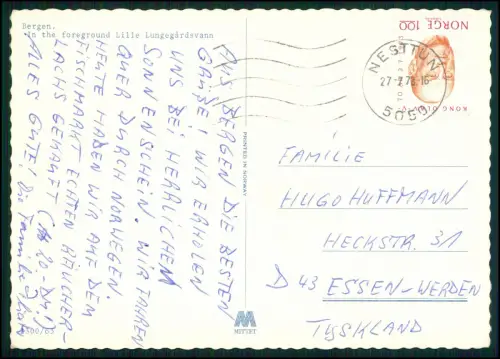 Bergen.
In the foreground Lille Lungegårdsvann
AUS BERGEN DIE BESTEN
GRÜßE! WIR ERHOLEN
UNS BEI HERRLICHEM
SONNENSCHEIN. WIR FAHREN
QUER DURCH NORWEGEN.
HEUTE HABEN WIR AUF DEM
FISCHMARKT ECHTEN RÄUCHER-
LACHS GEKAUFT (1/2 20.- DM!)
ALLES GUTE! Die Familie
PRINTED IN NORWAY
MITTET
NORGE 100
KONG OLAV V
NESTTUN
27-7.78-16
5050
FAMILIE
HUGO HUFFMANN
HECKSTR. 31
D 43 ESSEN-WERDEN
TYSKLAND